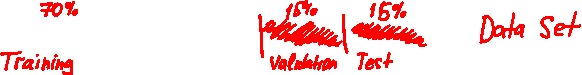 70% 15% 15%
Data Set
Training Validation Test